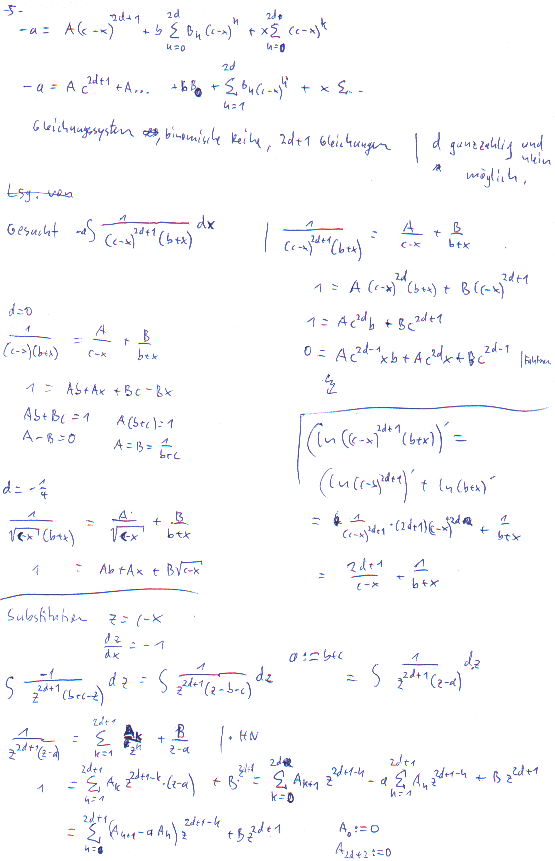 -5-
-a = A(c-x)^{2d+1} + b \sum_{k=0}^{2d} B_k (c-x)^k + x \sum_{k=0}^{2d} (c-x)^k
-a = A c^{2d+1} + A... + b B_0 + \sum_{k=1}^{2d} B_k (c-x)^k + x \sum ...
Gleichungssystem, binomische Reihe, 2d+1 Gleichungen | d ganzzahlig und klein möglich.
Lsg. von
Gesucht -a \int \frac{1}{(c-x)^{2d+1}(b+x)} dx
| \frac{1}{(c-x)^{2d+1}(b+x)} = \frac{A}{c-x} + \frac{B}{b+x}
1 = A(c-x)^{2d}(b+x) + B(c-x)^{2d+1}
1 = Ac^{2d}b + Bc^{2d+1}
0 = Ac^{2d-1}xb + Ac^{2d}x + Bc^{2d-1} |
d=0
\frac{1}{(c-x)(b+x)} = \frac{A}{c-x} + \frac{B}{b+x}
1 = Ab + Ax + Bc - Bx
Ab+Bc = 1 A(b+c) = 1
A-B = 0 A = B = \frac{1}{b+c}
(ln((c-x)^{2d+1}(b+x))' =
(ln(c-x)^{2d+1})' + ln(b+x)'
= \frac{1}{(c-x)^{2d+1}} \cdot (2d+1)(c-x)^{2d} + \frac{1}{b+x}
= \frac{2d+1}{c-x} + \frac{1}{b+x}
d = -\frac{1}{4}
\frac{1}{\sqrt{c-x}(b+x)} = \frac{A}{\sqrt{c-x}} + \frac{B}{b+x}
1 = Ab + Ax + B\sqrt{c-x}
Substitution z = c-x
\frac{dz}{dx} = -1
\int \frac{-1}{z^{2d+1}(b+c-z)} dz = \int \frac{1}{z^{2d+1}(z-b-c)} dz a := b+c = \int \frac{1}{z^{2d+1}(z-a)} dz
\frac{1}{z^{2d+1}(z-a)} = \sum_{k=1}^{2d+1} \frac{A_k}{z^k} + \frac{B}{z-a} | \cdot HN
1 = \sum_{k=1}^{2d+1} A_k z^{2d+1-k} \cdot (z-a) + B z^{2d+1} = \sum_{k=0}^{2d} A_{k+1} z^{2d+1-k} - a \sum_{k=1}^{2d+1} A_k z^{2d+1-k} + B z^{2d+1}
= \sum_{k=0}^{2d+1} (A_{k+1} - a A_k) z^{2d+1-k} + B z^{2d+1} A_0 := 0
A_{2d+2} := 0